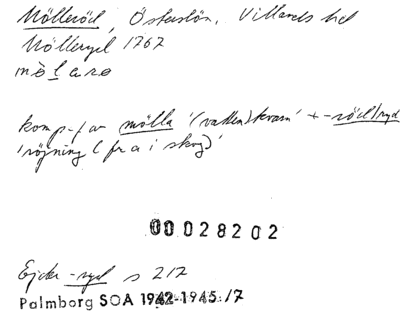 Mölleröd, Österslöv, Villands hd
Mölleryd 1767
mölaro
komp. av mölla '(vatten)kvarn' + -röd/ryd
'röjning (fr a i skog)'
00028202
Ejder -ryd s 217
Palmborg SOA 1942-1945:/7